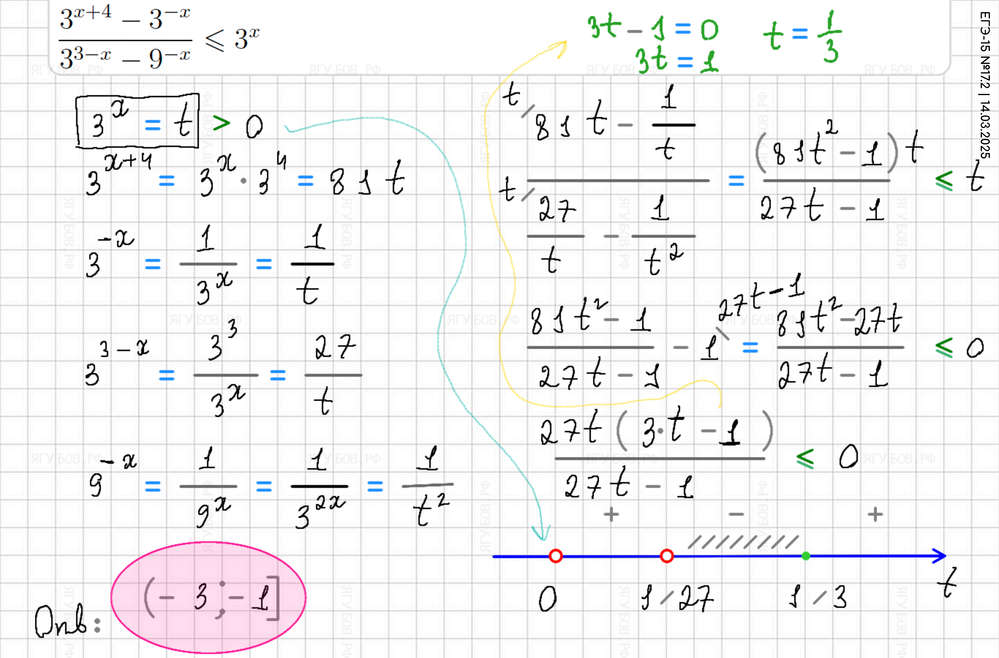 (3^{x+4} − 3^{−x}) / (3^{3−x} − 9^{−x}) ⩽ 3^x
ЕГЭ-15 №17.2 | 14.03.2025
3t − 1 = 0 t = 1/3
3t = 1
3^x = t > 0
3^{x+4} = 3^x · 3^4 = 81t
3^{−x} = 1/3^x = 1/t
3^{3−x} = 3^3/3^x = 27/t
9^{−x} = 1/9^x = 1/3^{2x} = 1/t^2
Отв: (−3; −1]
t/ 81t − 1/t
t/ 27/t − 1/t^2
= (81t^2 − 1)t / (27t − 1) ⩽ t
(81t^2 − 1)/(27t − 1) − 1\ 27t−1 = (81t^2 − 27t)/(27t − 1) ⩽ 0
27t(3·t − 1)/(27t − 1) ⩽ 0
+ − +
0 1/27 1/3 t